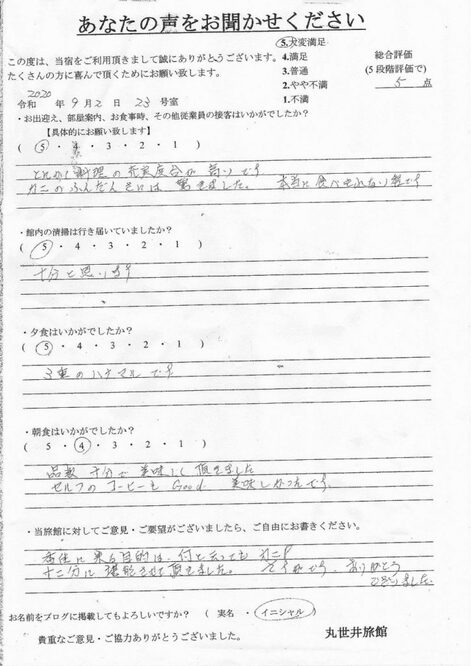 あなたの声をお聞かせください
この度は、当宿をご利用頂きまして誠にありがとうございます。
たくさんの方に喜んで頂くためにお願い致します。
5.大変満足
4.満足
3.普通
2.やや不満
1.不満
総合評価
(5段階評価で)
5 点
2020
令和 年 9月 2日 23号室
・お出迎え、部屋案内、お食事時、その他従業員の接客はいかがでしたか?
【具体的にお願い致します】
( 5・4・3・2・1 )
とにかく料理の充実度合が高いです
カニのふんだんさには驚きました。 本当に食べきれない程です
・館内の清掃は行き届いていましたか?
( 5・4・3・2・1 )
十分と思います
・夕食はいかがでしたか?
( 5・4・3・2・1 )
3重のハナマルです
・朝食はいかがでしたか?
( 5・4・3・2・1 )
品数 十分で 美味しく頂きました
セルフのコーヒーも Good 美味しかったです
・当旅館に対してご意見・ご要望がございましたら、ご自由にお書きください。
香住に来る目的は、何と云ってもカニ!
十二分に堪能させて頂きました。 ありがとう
ございました
お名前をブログに掲載してもよろしいですか? ( 実名 ・ イニシャル )
貴重なご意見・ご協力ありがとうございました。
丸世井旅館